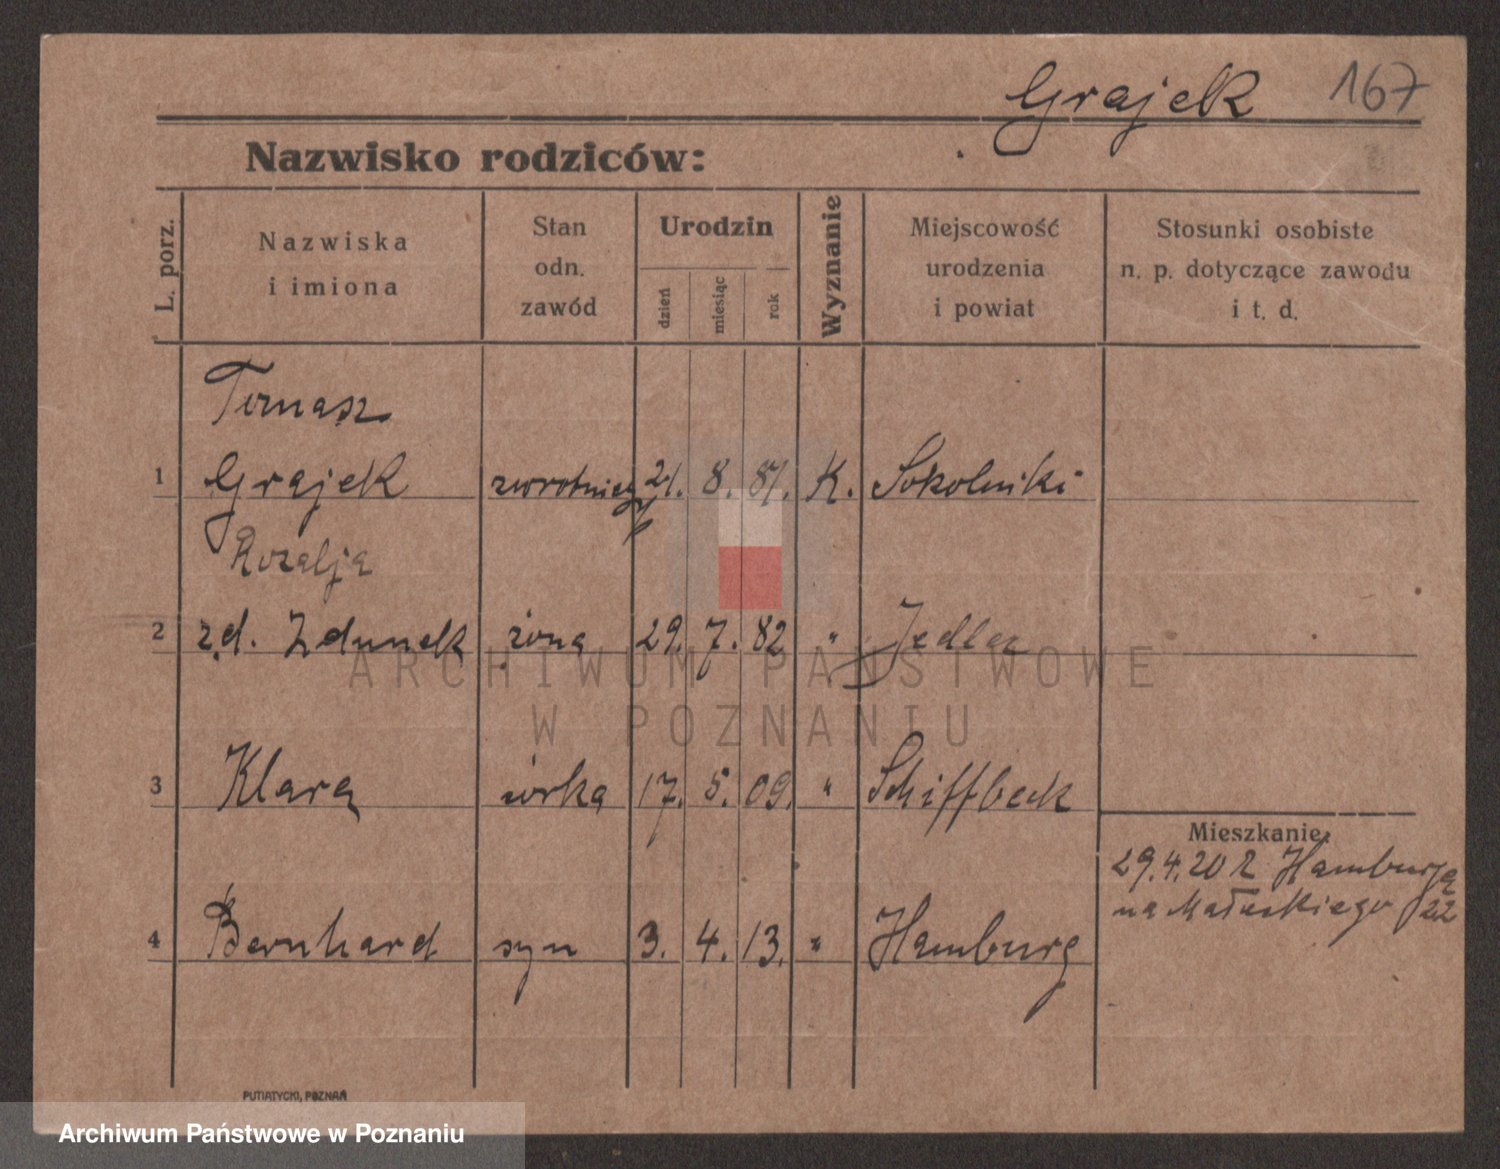 Grajek 167
Nazwisko rodziców:
L. porz.
Nazwiska
i imiona
Stan
odn.
zawód
Urodzin
dzień
miesiąc
rok
Wyznanie
Miejscowość
urodzenia
i powiat
Stosunki osobiste
n. p. dotyczące zawodu
i t. d.
Tomasz
1 Grajek zwrotniczy 21. 8. 87. K. Sokolniki
Rozalja
2 z.d. Zdunek żona 29. 7. 82 " Jedlec
ARCHIWUM PAŃSTWOWE
W POZNANIU
3 Klara córka 17. 5. 09. " Schiffbeck
Mieszkanie:
29.4.20 z Hamburga
na Małeckiego 22
4 Bernhard syn 3. 4. 13. " Hamburg
PUTIATYCKI, POZNAŃ
Archiwum Państwowe w Poznaniu